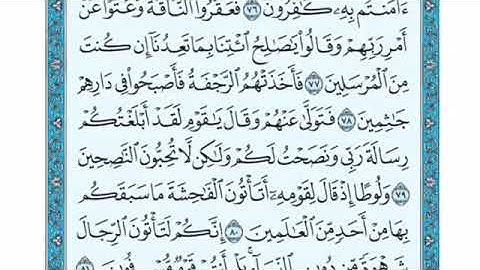 ءَامَنتُم بِهِۦ كَٰفِرُونَ ٧٦ فَعَقَرُوا۟ ٱلنَّاقَةَ وَعَتَوْا۟ عَنْ
أَمْرِ رَبِّهِمْ وَقَالُوا۟ يَٰصَٰلِحُ ٱئْتِنَا بِمَا تَعِدُنَآ إِن كُنتَ
مِنَ ٱلْمُرْسَلِينَ ٧٧ فَأَخَذَتْهُمُ ٱلرَّجْفَةُ فَأَصْبَحُوا۟ فِى دَارِهِمْ
جَٰثِمِينَ ٧٨ فَتَوَلَّىٰ عَنْهُمْ وَقَالَ يَٰقَوْمِ لَقَدْ أَبْلَغْتُكُمْ
رِسَالَةَ رَبِّى وَنَصَحْتُ لَكُمْ وَلَٰكِن لَّا تُحِبُّونَ ٱلنَّٰصِحِينَ
٧٩ وَلُوطًا إِذْ قَالَ لِقَوْمِهِۦٓ أَتَأْتُونَ ٱلْفَٰحِشَةَ مَا سَبَقَكُم
بِهَا مِنْ أَحَدٍ مِّنَ ٱلْعَٰلَمِينَ ٨٠ إِنَّكُمْ لَتَأْتُونَ ٱلرِّجَالَ
شَهْوَةً مِّن دُونِ ٱلنِّسَآءِ بَلْ أَنتُمْ قَوْمٌ مُّسْرِفُونَ ٨١